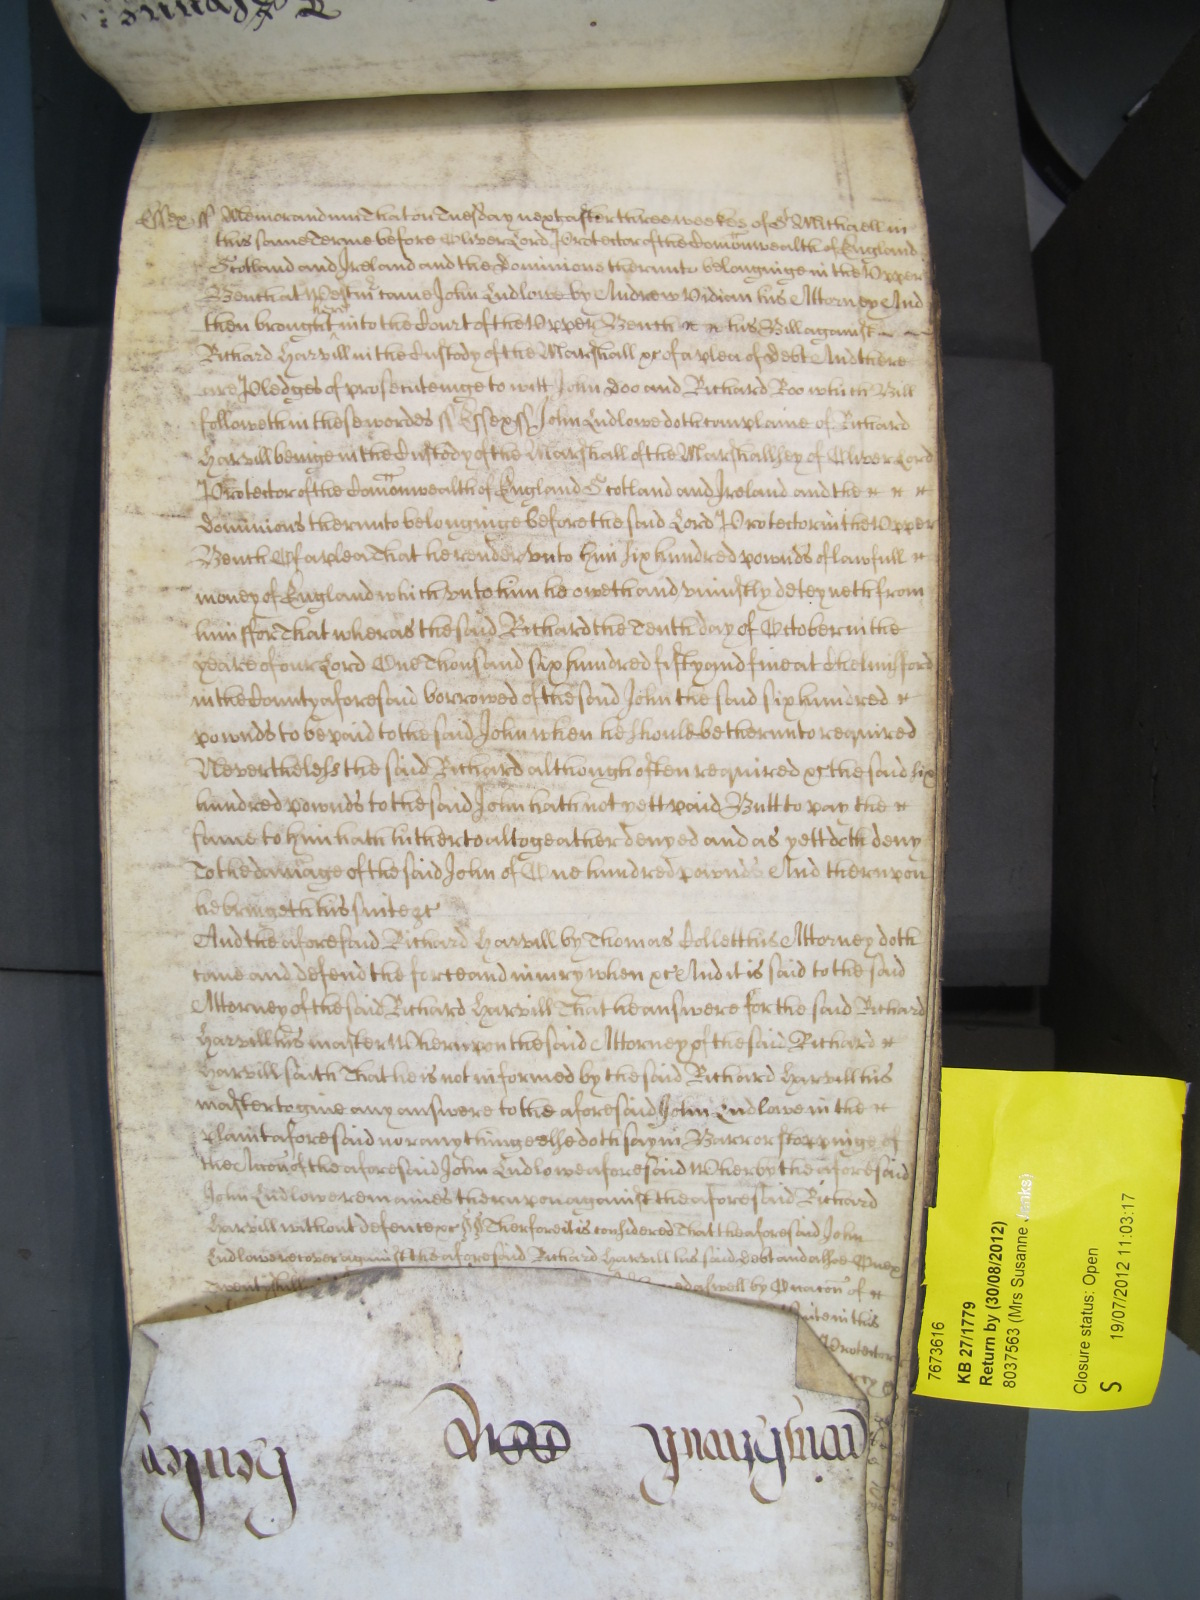 Essex ss Memorandum That on Tuesday next after three weekes of St Michaell in
this same Terme before Oliver Lord Protector of the Comonwealth of England
Scotland and Ireland and the Dominions therunto belonginge in the Upper
Bench at Westmr came John Ludlowe by Andrew Vidian his Attorney And
then brought into the Court of the Upper Bench his Bill against
Richard Harvill in the Custody of the Marshall xc of a plea of Debt And there
are Pledges of prosecuteinge to witt John Doo and Richard Roo which Bill
followeth in these wordes ss Essex ss John Ludlowe doth complaine of Richard
Harvill beinge in the Custody of the Marshall of the Marshallsey of Oliver Lord
Protector of the Comonwealth of England Scotland and Ireland and the
Dominions therunto belonginge before the said Lord Protector in the Upper
Bench Of a plea That he render unto him six hundred pownds of lawfull
money of England which unto him he oweth and uniustly deteyneth from
him ffor That wheras the said Richard the Tenth day of October in the
yeare of our Lord One Thousand six hundred fifty and five at Chelmisford
in the County aforesaid borrowed of the said John the said six hundred
pownds to be paid to the said John when he should be therunto required
Neverthelesse the said Richard although often required xc the said six
hundred pownds to the said John hath not yett paid Butt to pay the
same to him hath hitherto altogeather denyed and as yett doth deny
To the damage of the said John of One hundred pownds And therupon
he bringeth his suite xc
And the aforesaid Richard Harvill by Thomas Collett his Attorney doth
come and defend the force and iniury when xc And it is said to the said
Attorney of the said Richard Harvill That he answere for the said Richard
Harvill his master Wherupon the said Attorney of the said Richard
Harvill saith That he is not informed by the said Richard Harvill his
master to give any answere to the aforesaid John Ludlowe in the
plaint aforesaid nor any thinge else doth say in Barr or stoppinge of
the Accon of the aforesaid John Ludlowe aforesaid Wherby the aforesaid
John Ludlowe remaines therupon against the aforesaid Richard
Harvill without defence xc Therfore it is considered That the aforesaid John
Ludlowe recover against the aforesaid Richard Harvill his said debt and alsoe
twenty shill aswell by
in this
Protector
7673616
KB 27/1779
Return by (30/08/2012)
8037563 (Mrs Susanne Jenks)
Closure status: Open
S 19/07/2012 11:03:17